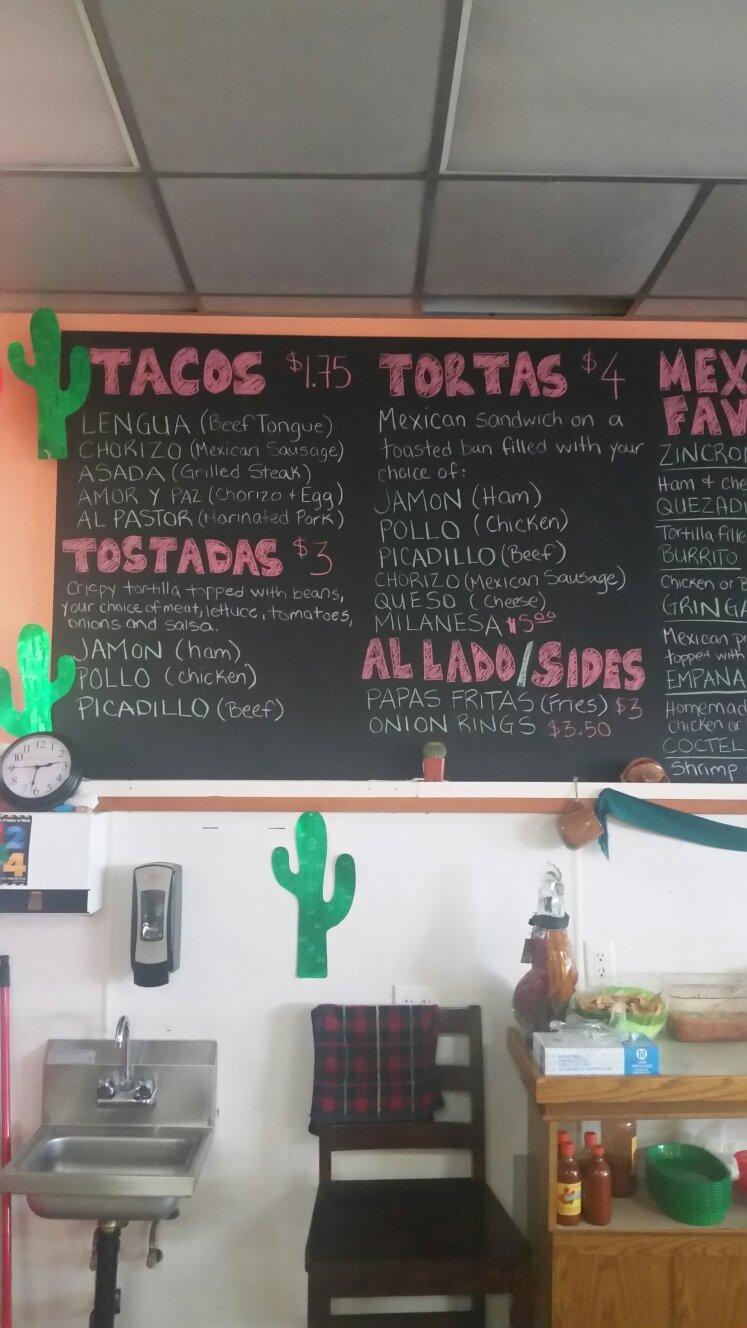 TACOS $1.75
LENGUA (Beef Tongue)
CHORIZO (Mexican Sausage)
ASADA (Grilled Steak)
AMOR Y PAZ (Chorizo + Egg)
AL PASTOR (Marinated Pork)
TOSTADAS $3
Crispy tortilla topped with beans,
your choice of meat, lettuce, tomatoes,
onions and salsa.
JAMON (ham)
POLLO (chicken)
PICADILLO (Beef)
TORTAS $4
Mexican sandwich on a
toasted bun filled with your
choice of:
JAMON (Ham)
POLLO (Chicken)
PICADILLO (Beef)
CHORIZO (Mexican Sausage)
QUESO (Cheese)
MILANESA $5.00
AL LADO/SIDES
PAPAS FRITAS (Fries) $3
ONION RINGS $3.50
MEX
FAV
ZINCRO
Ham & che
QUEZAD
Tortilla fille
BURRITO
Chicken or B
GRINGA
Mexican p
topped with
EMPANA
Homemad
chicken or
COCTEL
Shrimp
12 1 2 3 4 5 6 7 8 9 10 11
2
4